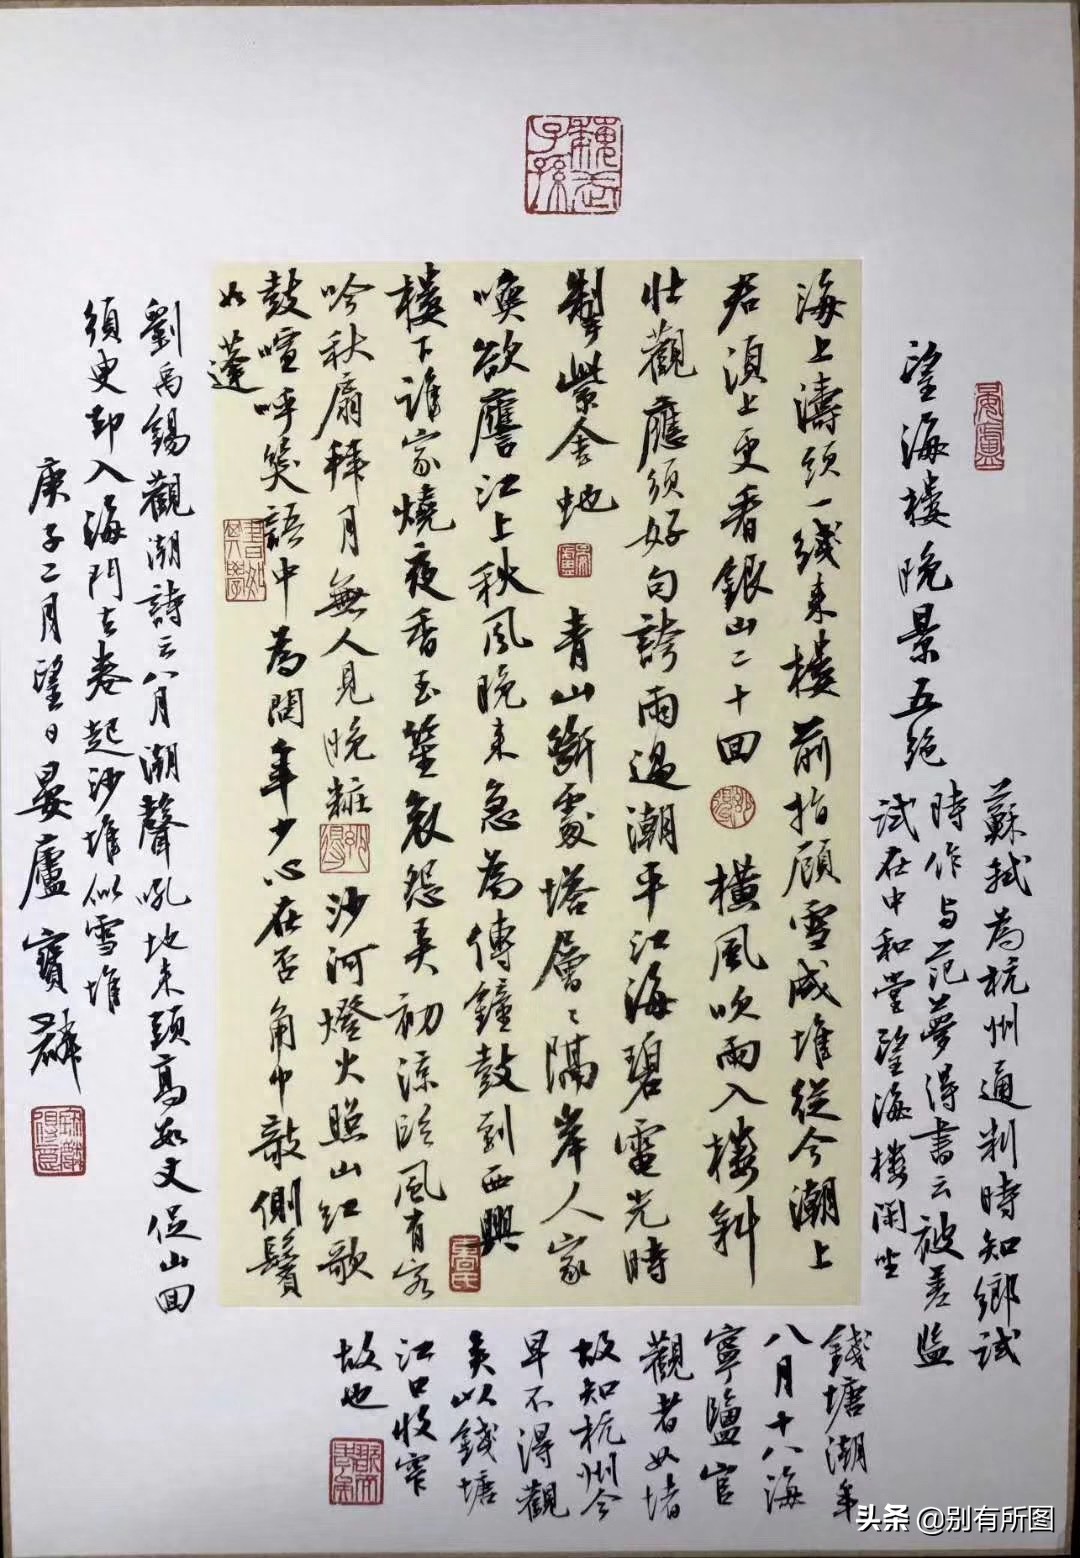 望海樓晚景五絶
蘇軾為杭州通判時知鄉試
時作与范夢得書云被差監
試在中和堂望海樓闲坐
海上濤頭一綫来樓前指顧雪成堆從今潮上
君須上更看銀山二十回
橫風吹雨入樓斜
壮觀應須好句誇雨過潮平江海碧電光時
掣紫金虵
青山斷處塔層〻隔岸人家
喚欲譍江上秋風晚来急為傳鐘鼓到西興
樓下誰家燒夜香玉笙哀怨弄初涼臨風有客
吟秋扇拜月無人見晚粧
沙河燈火照山红歌
鼓喧呼笑語中為問年少心在否角巾敧側鬢
如蓬
錢塘潮年
八月十八海
寧鹽官
觀者如堵
故知杭州今
早不得觀
矣以錢塘
江口收窄
故也
劉禹錫觀潮詩云八月潮聲吼地来頭高数丈促山回
須臾却入海門去卷起沙堆似雪堆
庚子二月望日晏廬寶麟
头条 @别有所图